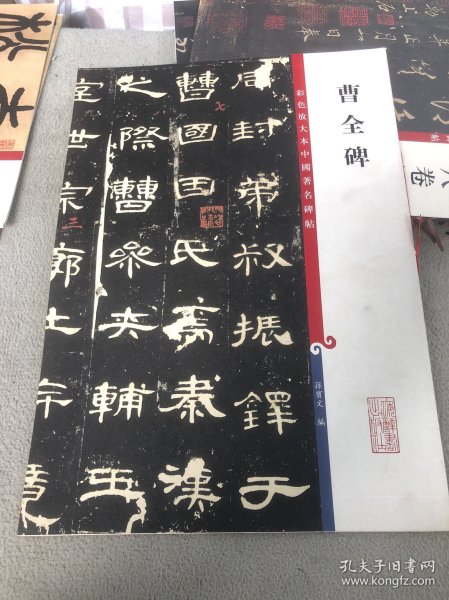 曹全碑
彩色放大本中國著名碑帖
孫寶文 編
周封弟叔振鐸于
曹國因氏焉秦漢
之際曹參夾輔王
室世宗廓土斥竟
卷
孔夫子旧书网
www.kongfz.com